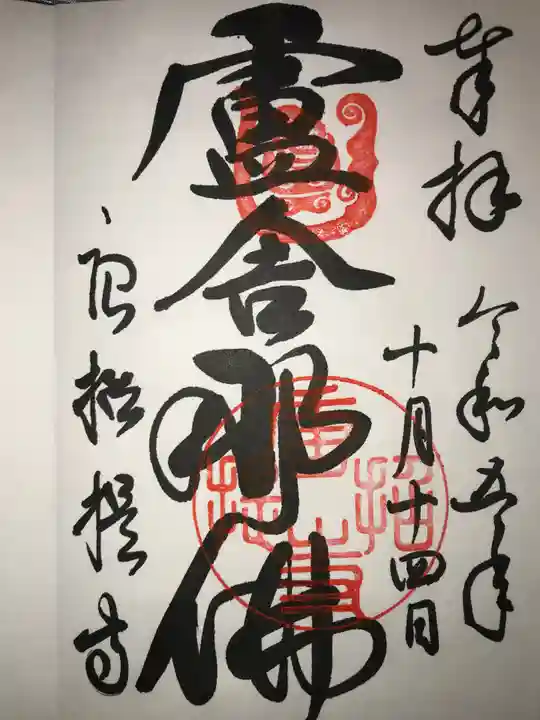 奉拝 令和五年
十月十四日
盧舎那佛
唐招提寺